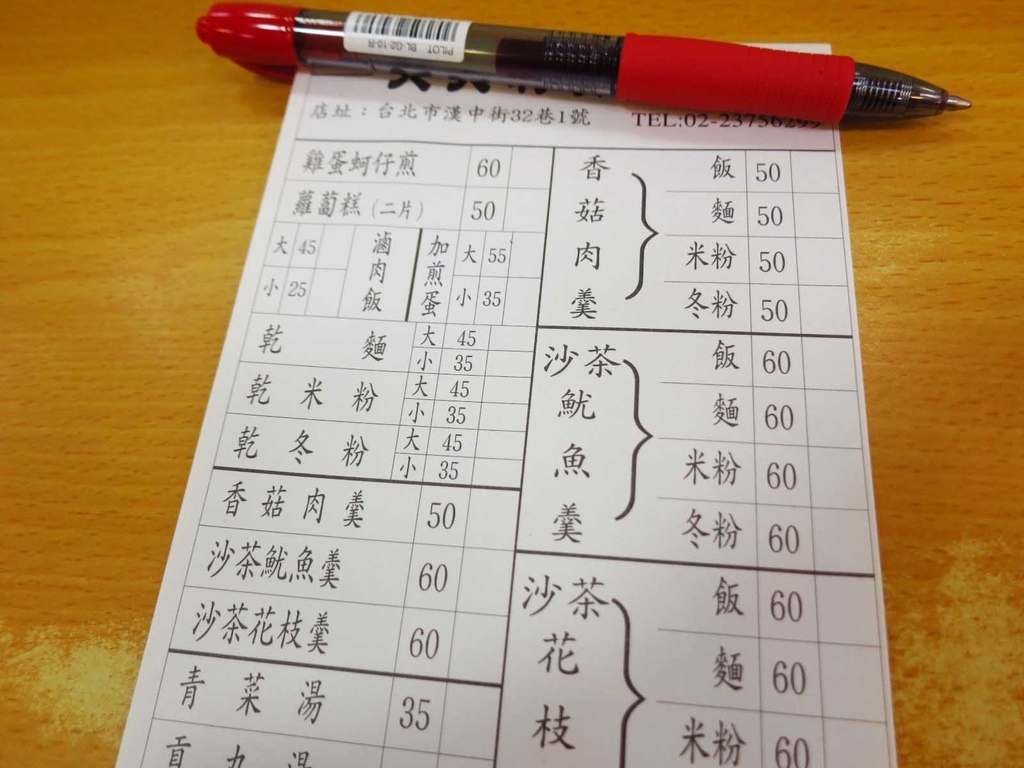 PILOT BL-G2-10-R
店址：台北市漢中街32巷1號 TEL:02-23756255
雞蛋蚵仔煎 60
蘿蔔糕（二片） 50
滷肉飯 大 45 小 25
加煎蛋 大 55 小 35
乾麵 大 45 小 35
乾米粉 大 45 小 35
乾冬粉 大 45 小 35
香菇肉羹 50
沙茶魷魚羹 60
沙茶花枝羹 60
青菜湯 35
貢丸湯
香菇肉羹
飯 50
麵 50
米粉 50
冬粉 50
沙茶魷魚羹
飯 60
麵 60
米粉 60
冬粉 60
沙茶花枝
飯 60
麵 60
米粉 60